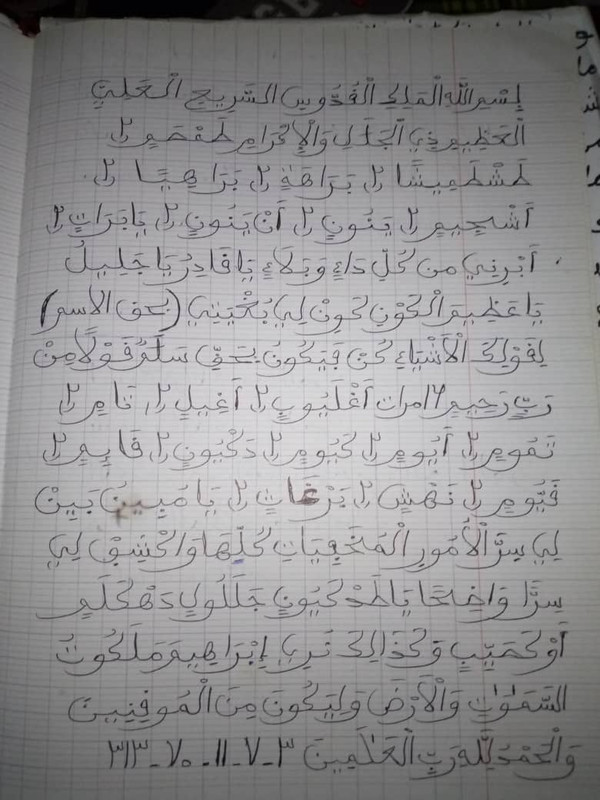 بِسْمِ اللَّهِ الْمَلِكِ الْقُدُّوسِ السَّرِيعِ الْعَلِيِّ
الْعَظِيمِ ذِي الْجَلَالِ وَالْإِكْرَامِ طَمْقَصٍ ٢
طَشْطَمِيشًا ٢ بَرَاهَةٍ ٢ بَرَاهِيًا ٢
أَشْحِيمٍ ٢ يَنُونٍ ٢ أَنْ يَنُونٍ ٢ يَا بَرَاتٍ ٢
أَبْرِنِي مِن كُلِّ دَاءٍ وَبَلَاءٍ يَا قَادِرُ يَا جَلِيلُ
يَا عَظِيمَ الْكَوْنِ كَوِنْ لِي بُغْيَتِي (بحق الاسم)
لِقَوْلِكَ الْأَشْيَاءِ كُنْ فَيَكُونُ بِحَقِّ سَلَمٌ قَوْلًا مِنْ
رَبٍّ رَحِيمٍ ١٦ مرات أَغْلَيُوبٍ ٢ أَغِيلٍ ٢ نَامٍ ٢
نَمُومٍ ٢ أَيُومٍ ٢ كَيُومٍ ٢ دَكْيُونٍ ٢ قَايِمٍ ٢
قَيُّومٍ ٢ نَهْشٍ ٢ بَرْغَاتٍ ٢ يَا مُبِينُ بَيِنْ
لِي سِرَّ الْأُمُورِ الْمَخْفِيَاتِ كُلِّهَا وَاكْشِفْ لِي
سِرًّا وَاضِحًا يَا طَدْكَيُونٍ جَلَلُولٍ دَهْكَلَمٍ
أَوْكَصَيِّبٍ وَكَذَالِكَ نُرِي إِبْرَاهِيمَ مَلَكُوتَ
السَّمَوَاتِ وَالْأَرْضَ وَلِيَكُونَ مِنَ الْمُوقِنِينَ
وَالْحَمْدُ لِلَّهِ رَبِّ الْعَلَمِينَ ٣-٧-١١-٧٠-٣١٣